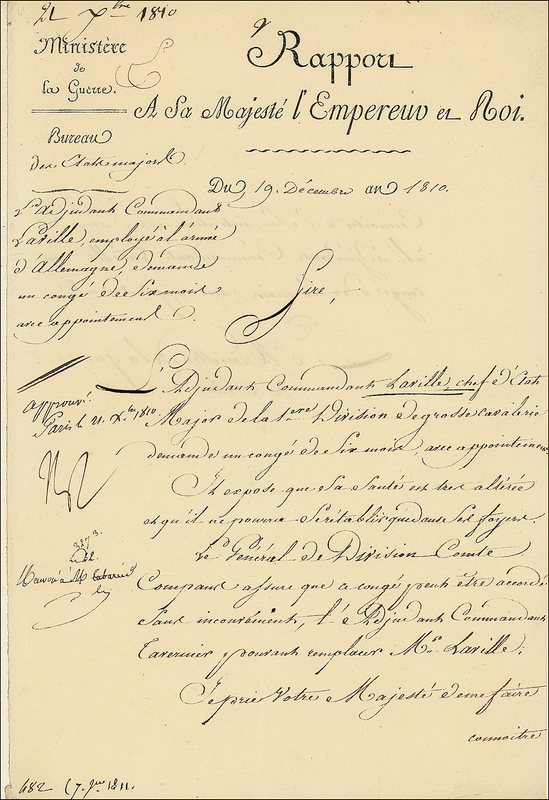 21 Xbre 1810
Ministère
de
la Guerre.
Bureau
des Etats majors.
Rapport
A Sa Majesté l'Empereur et Roi.
Du 19. Décembre an 1810.
L'adjudant Commandant
Laville, employé à l'armée
d'Allemagne, demande
un congé de six mois
avec appointement
Sire,
L'Adjudant Commandant Laville, chef d'Etat
Major de la 1ere Division de grosse cavalerie
demande un congé de Six mois, avec appointemens
Il expose que Sa Santé est très altérée
et qu'il ne pourra Se rétablir que dans Ses foyers.
Le Général de Division Comte
Compans assure que ce congé peut être accordé
Sans inconvénient, l'Adjudant Commandant
Tavernier pouvant remplacer Mr. Laville.
Je prie Votre Majesté de me faire
connoitre
approuvé
Paris le 21. Xbre 1810.
Np
3273.
Renvoi à M
482 (7. Jer 1811.